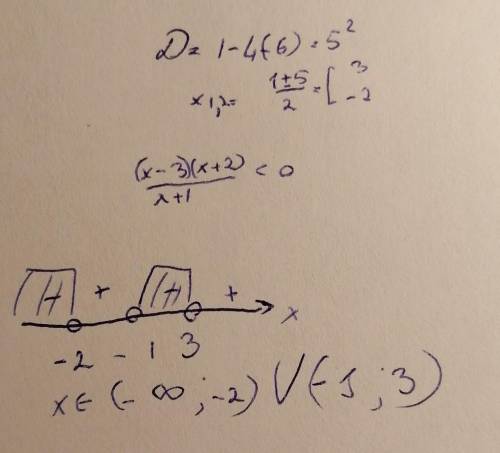 D = 1 - 4(-6) = 5²
x 1,2 = 1±5/2 = [ 3 -2
(x-3)(x+2)/x+1 < 0
+ +
x
-2 -1 3
x ∈ (-∞ ; -2) V (-1 ; 3)